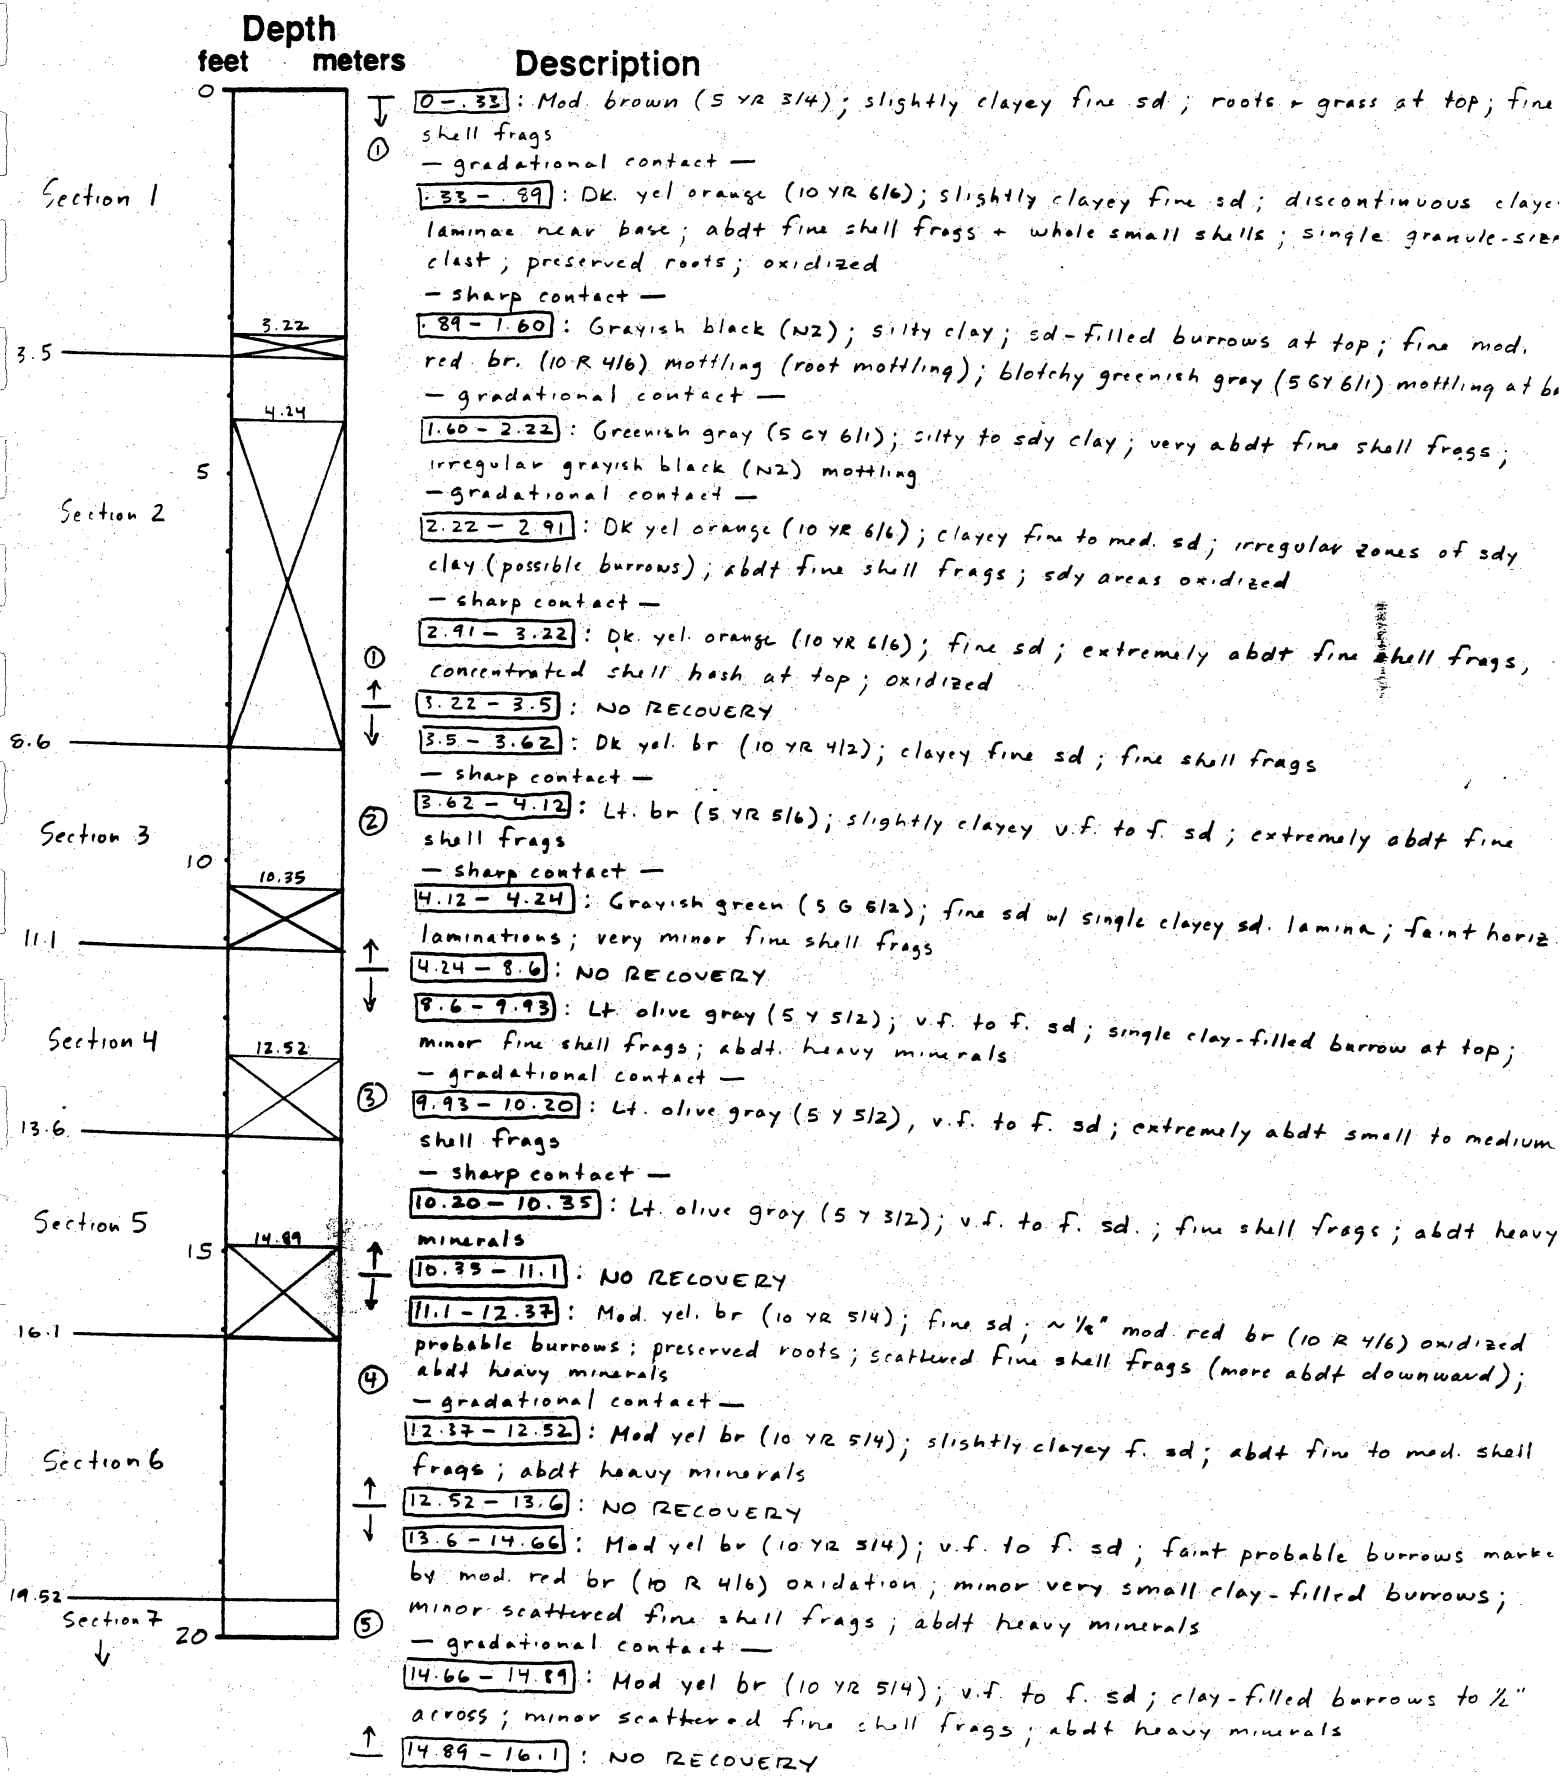 Depth
feet meters Description
0
0-.33: Mod. brown (5 YR 3/4); slightly clayey fine sd; roots + grass at top; fine
shell frags
①
— gradational contact —
Section 1
.33-.89: Dk. yel orange (10 YR 6/6); slightly clayey fine sd; discontinuous claye
laminae near base; abdt fine shell frags + whole small shells; single granule-size
clast; preserved roots; oxidized
— sharp contact —
3.22
.89-1.60: Grayish black (N2); silty clay; sd-filled burrows at top; fine mod.
3.5
red br. (10 R 4/6) mottling (root mottling); blotchy greenish gray (5 GY 6/1) mottling at ba
— gradational contact —
4.24
1.60-2.22: Greenish gray (5 GY 6/1); silty to sdy clay; very abdt fine shell frags;
irregular grayish black (N2) mottling
5
— gradational contact —
Section 2
2.22-2.91: Dk yel orange (10 YR 6/6); clayey fine to med. sd; irregular zones of sdy
clay (possible burrows); abdt fine shell frags; sdy areas oxidized
— sharp contact —
2.91-3.22: Dk. yel. orange (10 YR 6/6); fine sd; extremely abdt fine shell frags,
①
concentrated shell hash at top; oxidized
↑
3.22-3.5: NO RECOVERY
↓
8.6
3.5-3.62: Dk yel. br (10 YR 4/2); clayey fine sd; fine shell frags
— sharp contact —
②
3.62-4.12: Lt. br (5 YR 5/6); slightly clayey v.f. to f. sd; extremely abdt fine
Section 3
shell frags
10
— sharp contact —
10.35
4.12-4.24: Grayish green (5 G 5/2); fine sd w/ single clayey sd. lamina; faint horiz.
11.1
laminations; very minor fine shell frags
↑
4.24-8.6: NO RECOVERY
↓
8.6-9.93: Lt. olive gray (5 Y 5/2); v.f. to f. sd; single clay-filled burrow at top;
Section 4
12.52
minor fine shell frags; abdt. heavy minerals
— gradational contact —
③
9.93-10.20: Lt. olive gray (5 Y 5/2), v.f. to f. sd; extremely abdt small to medium
13.6
shell frags
— sharp contact —
10.20-10.35: Lt. olive gray (5 Y 3/2); v.f. to f. sd.; fine shell frags; abdt heavy
Section 5
minerals
15
14.89
↑
10.35-11.1: NO RECOVERY
↓
11.1-12.37: Mod. yel. br (10 YR 5/4); fine sd; ~ 1/2" mod red br (10 R 4/6) oxidized
16.1
probable burrows; preserved roots; scattered fine shell frags (more abdt downward);
④
abdt heavy minerals
— gradational contact —
12.37-12.52: Mod yel br (10 YR 5/4); slightly clayey f. sd; abdt fine to med. shell
Section 6
frags; abdt heavy minerals
↑
12.52-13.6: NO RECOVERY
↓
13.6-14.66: Mod yel br (10 YR 5/4); v.f. to f. sd; faint probable burrows marke
by mod. red br (10 R 4/6) oxidation; minor very small clay-filled burrows;
19.52
Section 7
minor scattered fine shell frags; abdt heavy minerals
↓
20
⑤
— gradational contact —
14.66-14.89: Mod yel br (10 YR 5/4); v.f. to f. sd; clay-filled burrows to 1/2"
across; minor scattered fine shell frags; abdt heavy minerals
↑
14.89-16.1: NO RECOVERY